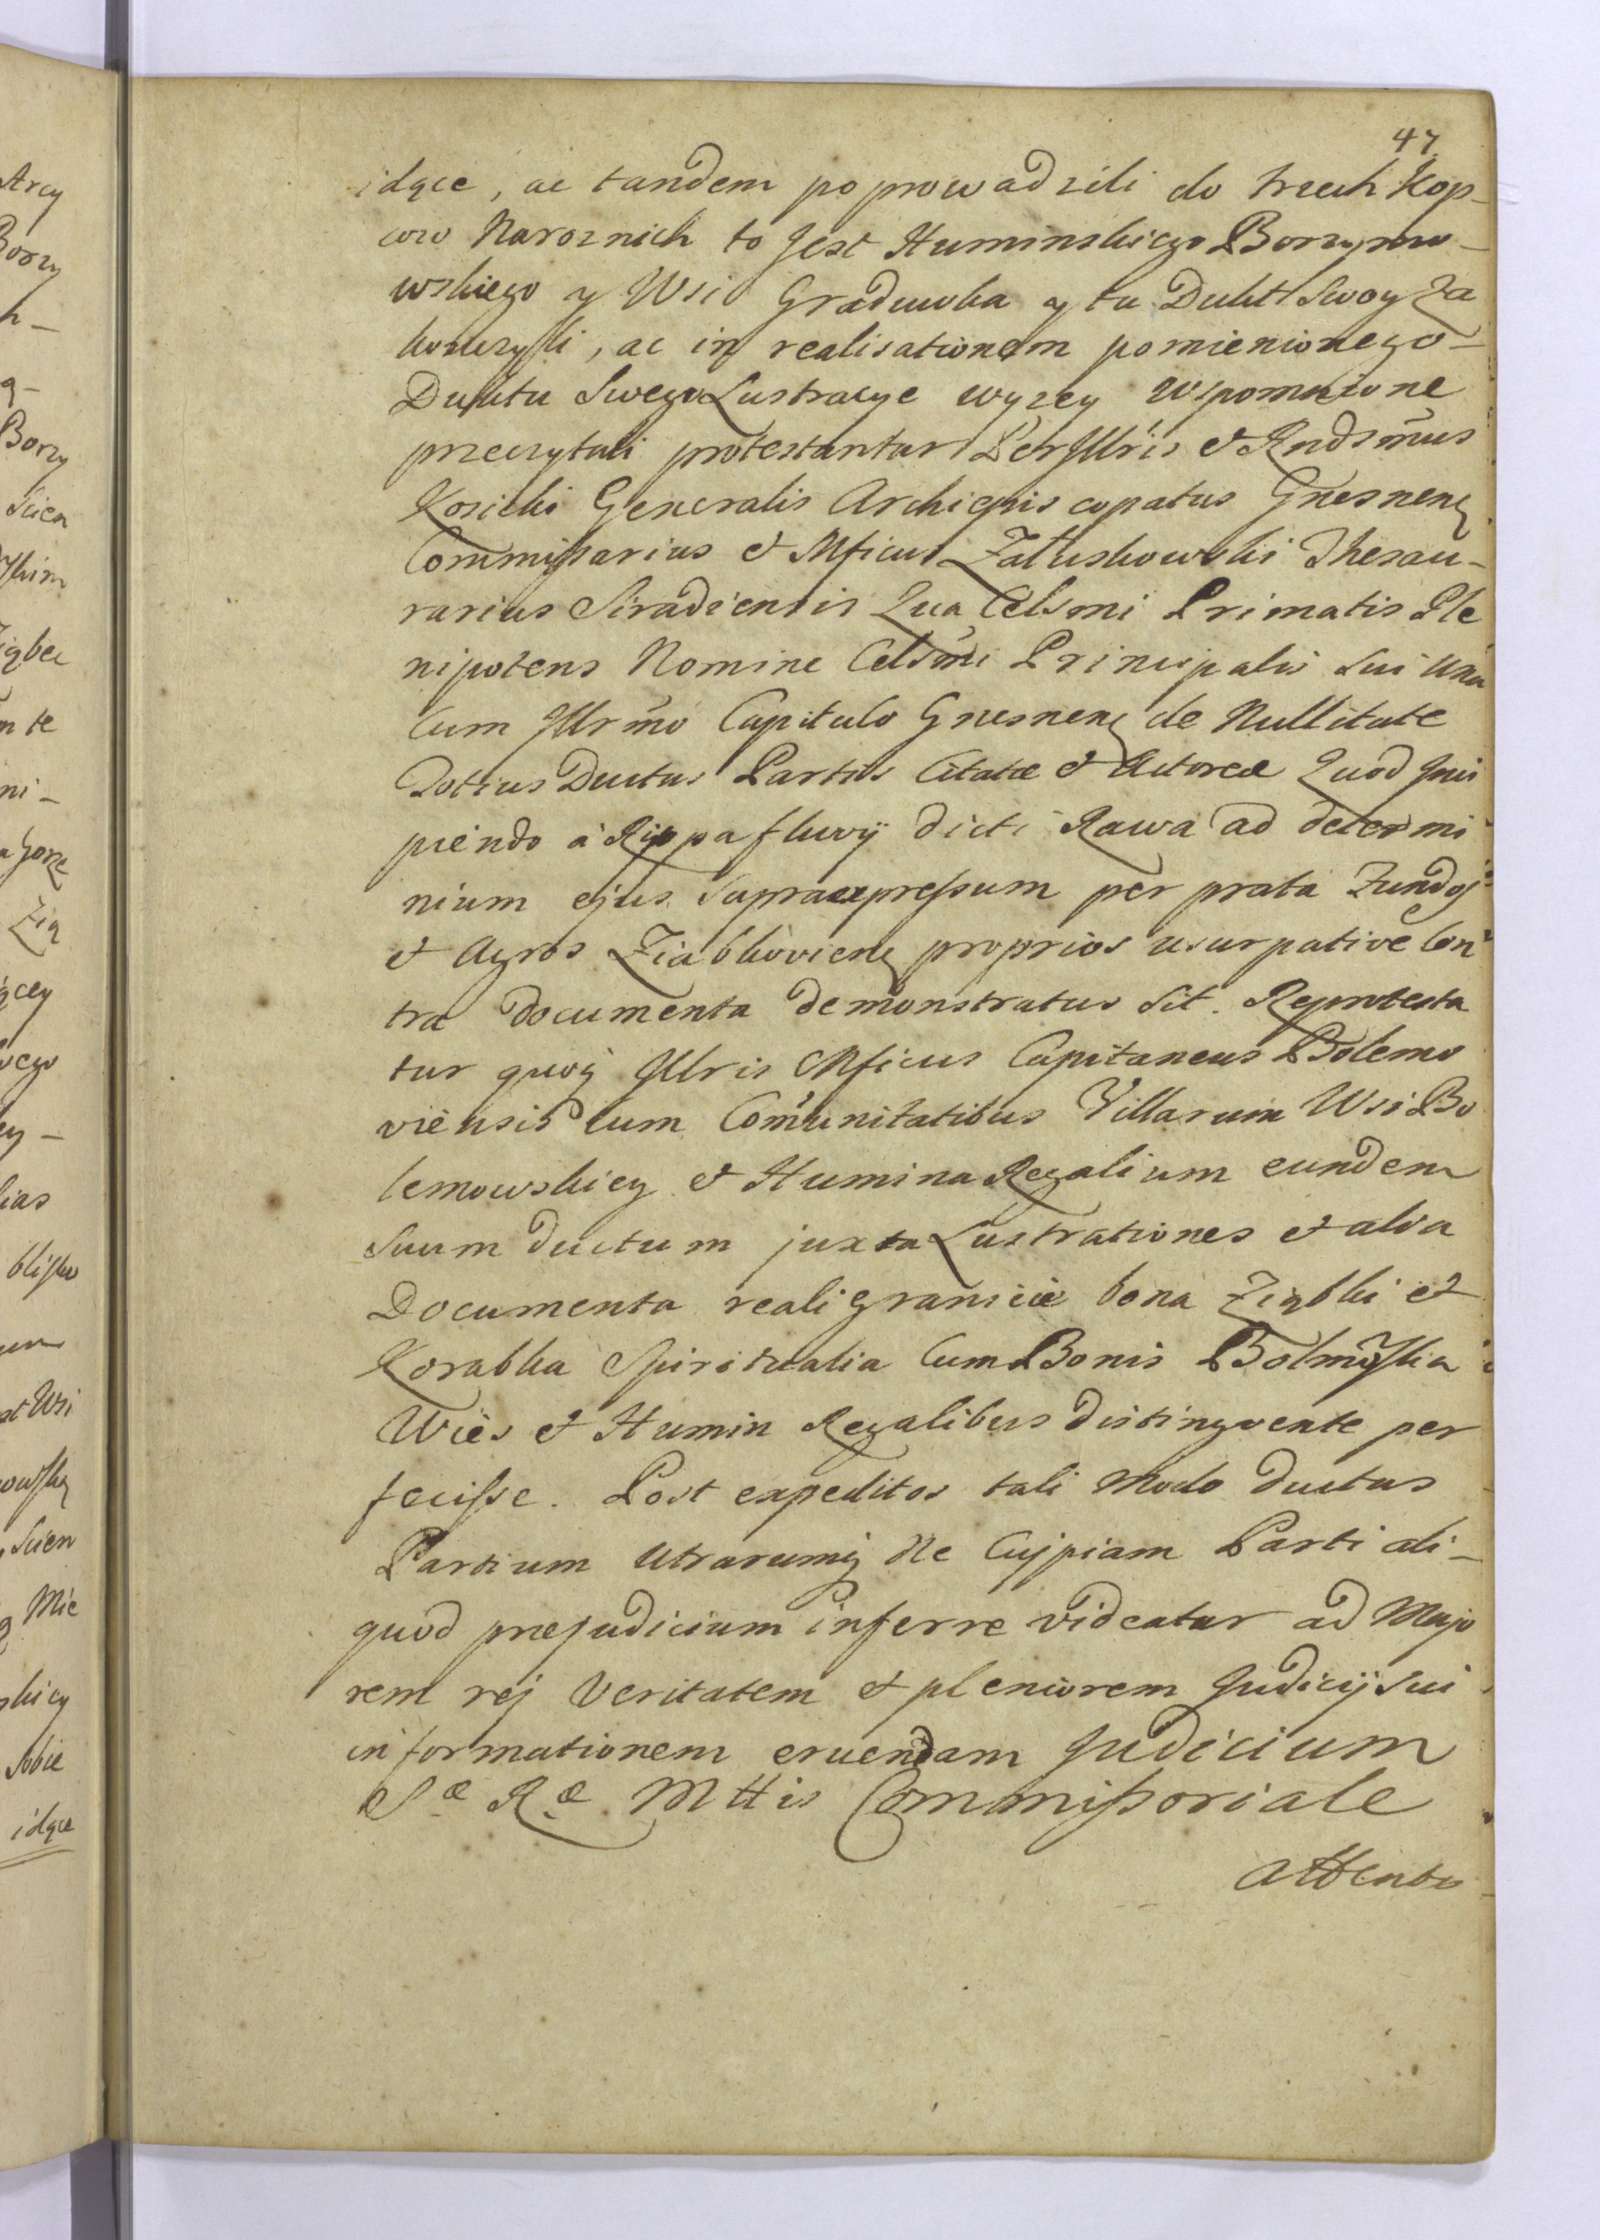 47.
idące, ac tandem poprowadzili do trzech Kop-
cow Naroznich to Jest Huminskiego Borzymo-
wskiego y Wsi Gradowka y tu Dukt Swoy Za
konczyli, ac in realisationem pomienionego-
Duktu Swego Lustracye wyzey wspomnione
przeczytali protestantur PerJllris & Rndsm̃us
Kosicki Generalis Archiepiscopatus Gnesnenę
Commissarius & Mficus Załuskowski Thesau-
rarius Siradiensis Qua Celsmi Primatis Ple
nipotens Nomine Celsm̃i Principalis Sui una
Cum Jllrm̃o Capitulo Gnesnenę de Nullitate
Totius Ductus Partis Citatæ & Actoreæ Quod Jnci
piendo á Rippa fluvij dicti Rawa ad determi
nium ejus supraexpressum per prata Fundoş
& Agros Ziabkovienę proprios usurpative Con
tra documenta demonstratus sit. Reprotesta
tur quoq̨ Jllris Mficus Capitaneus Bolemo
viensis cum Com̃unitatibus Villarum Wsi Bo
lemowskiey & Humina Regalium eundem
suum ductum juxta Lustrationes et alia
Documenta reali granicie bona Ziąbki et
Korabka Spiritualia Cum Bonis Bolmowska
Wiés & Humin Regalibus distingvente per
fecisse. Post expeditos tali Modo ductus
Partium Utrarumq̨ Ne Cujpiam Parti ali-
quod præjudicium inferre videatur ad Majo
rem rej Veritatem & pleniorem Judicij sui
informationem eruendam Judicium
Sæ Ræ Mttis Commissoriale
attentis
Arcy
Borzy
Borzy
Scien
Ziąbec
ni-
Zią
ącey
wego
lias
Wsi
Scien
Mie
skiey
sobie
idące